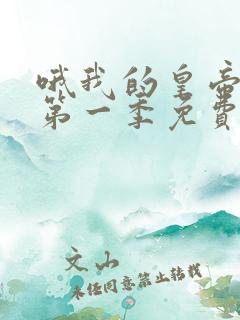 哦我的皇帝
第一季免費
文山
未经同意禁止转载